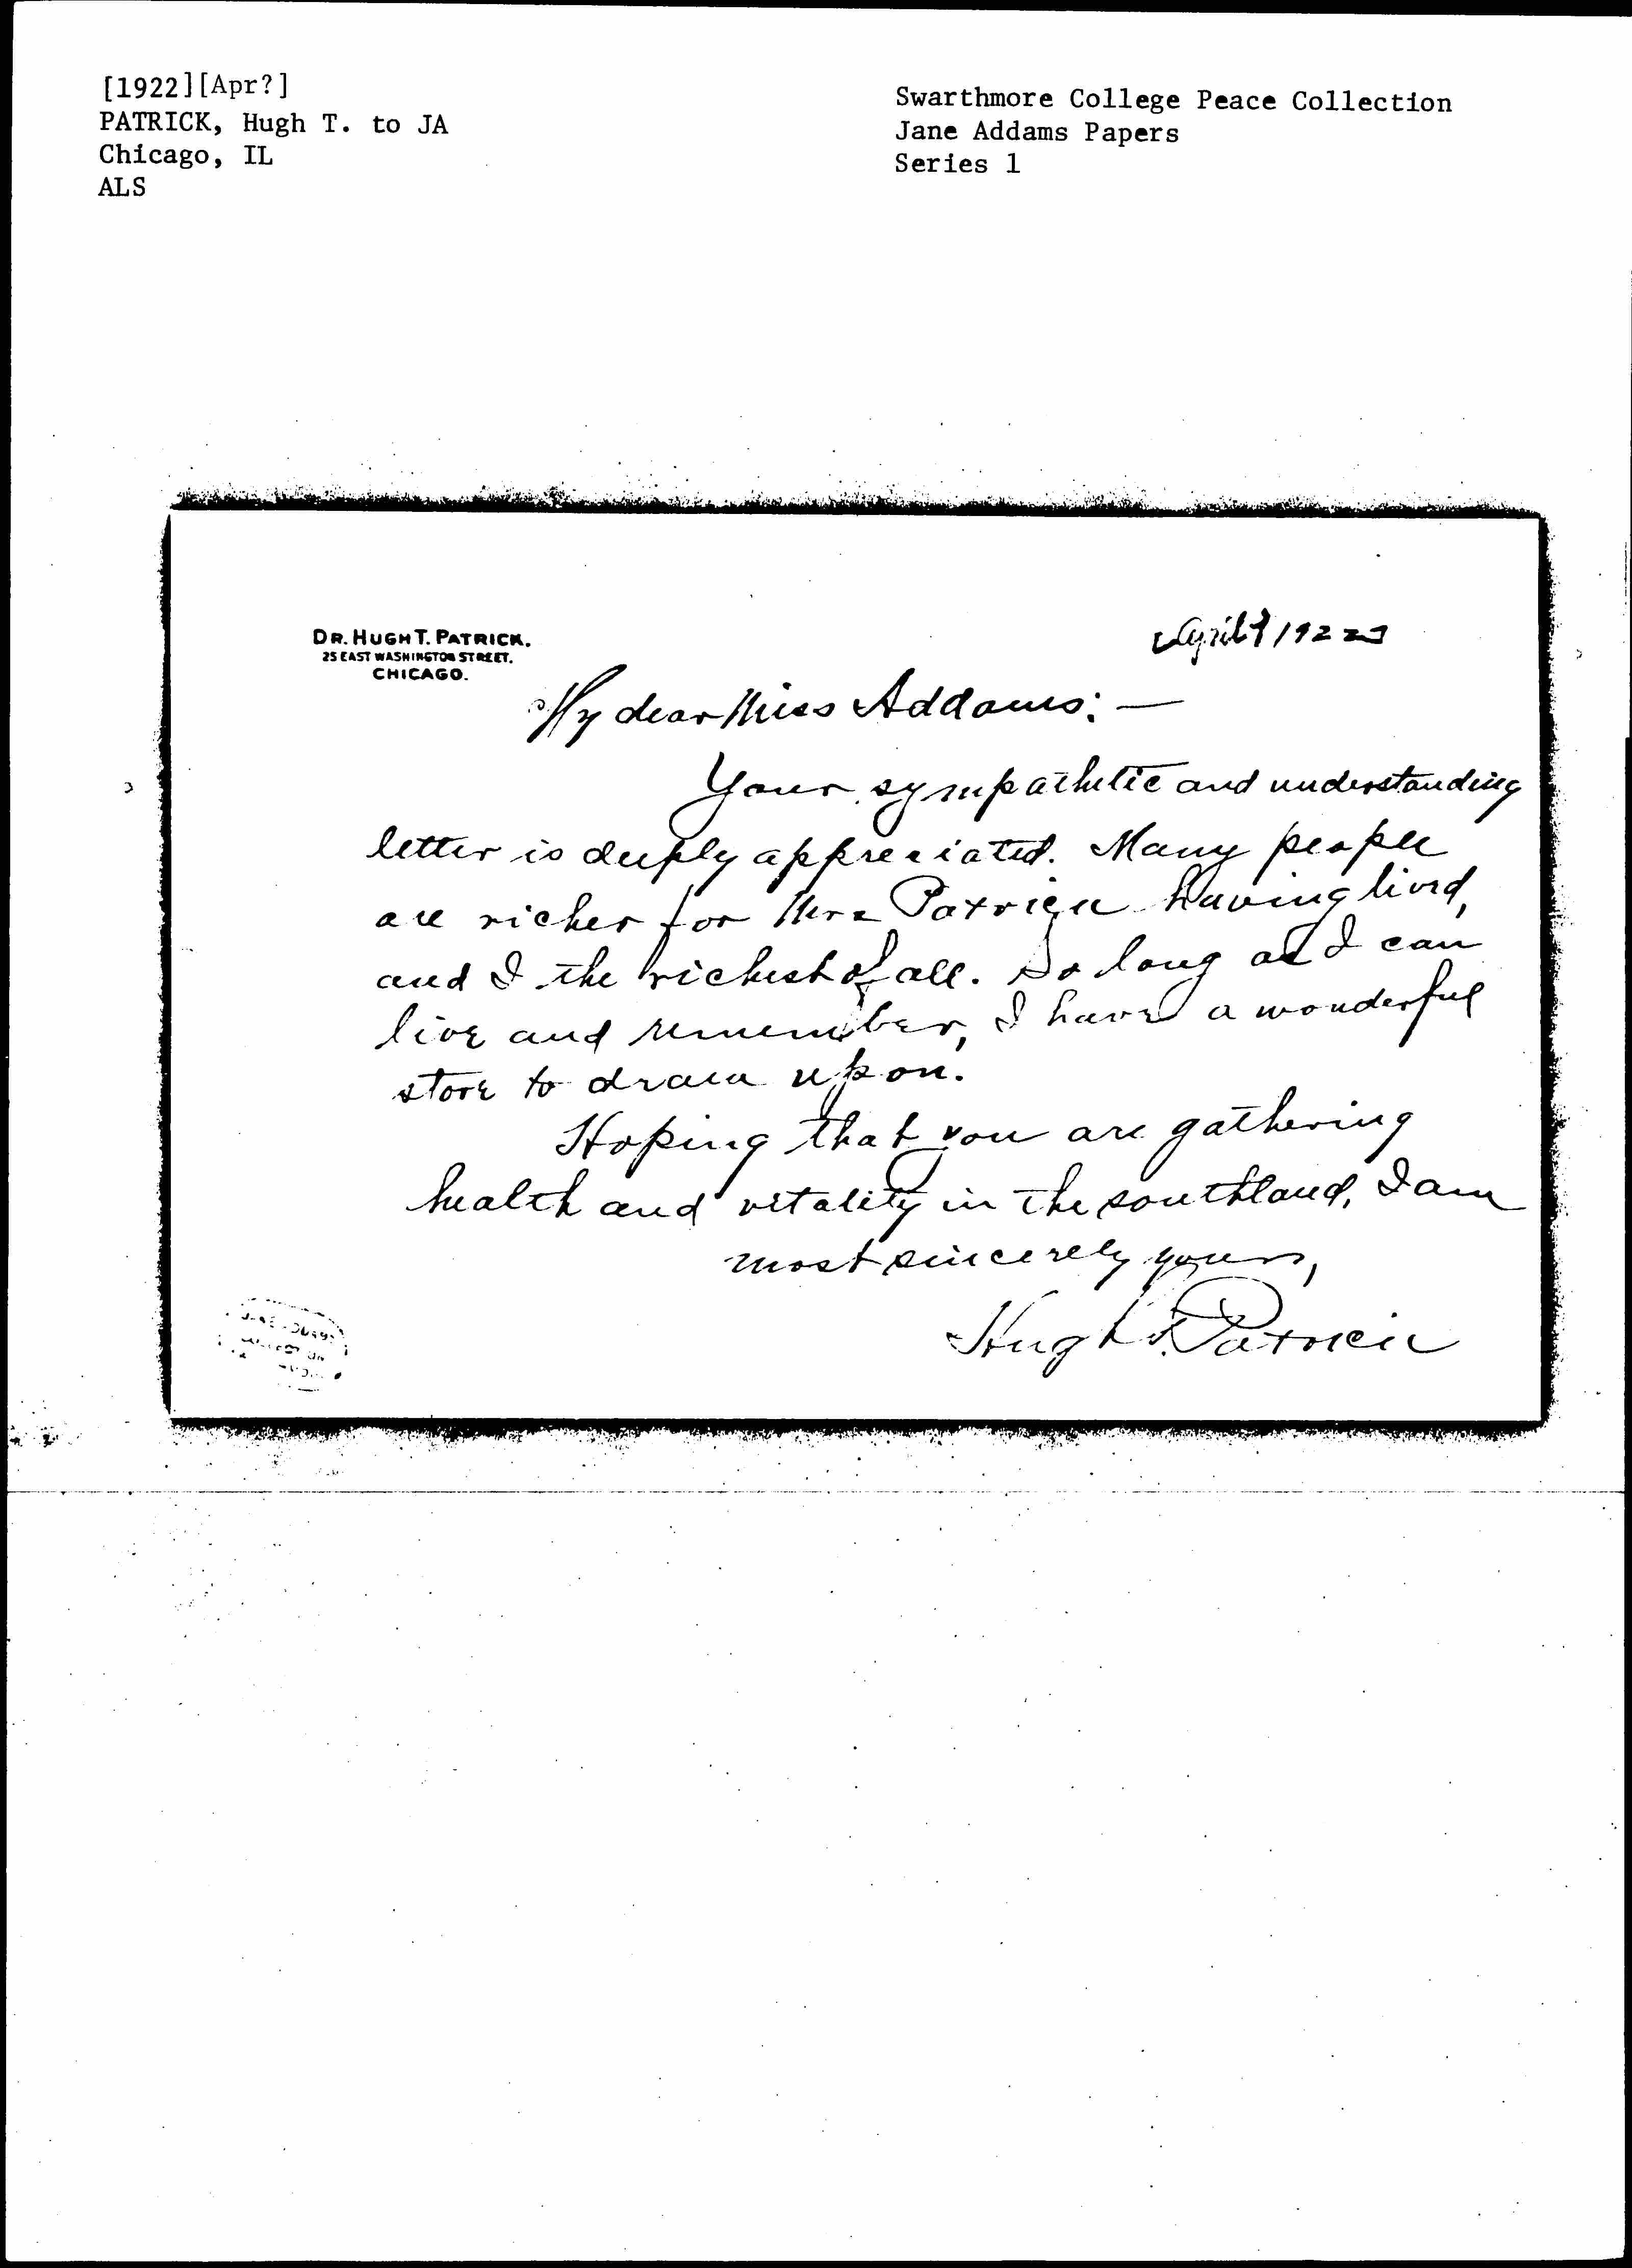 [1922][Apr?]
PATRICK, Hugh T. to JA
Chicago, IL
ALS
Swarthmore College Peace Collection
Jane Addams Papers
Series 1
DR. HUGH T. PATRICK.
25 EAST WASHINGTON STREET.
CHICAGO.
[April? 1922]
My dear Miss Addams: —
Your sympathetic and understanding
letter is deeply appreciated. Many people
are richer for Mrs Patrick having lived,
and I the richest of all. So long as I can
live and remember, I have a wonderful
store to draw upon.
Hoping that you are gathering
health and vitality in the southland, I am
most sincerely yours,
Hugh T. Patrick